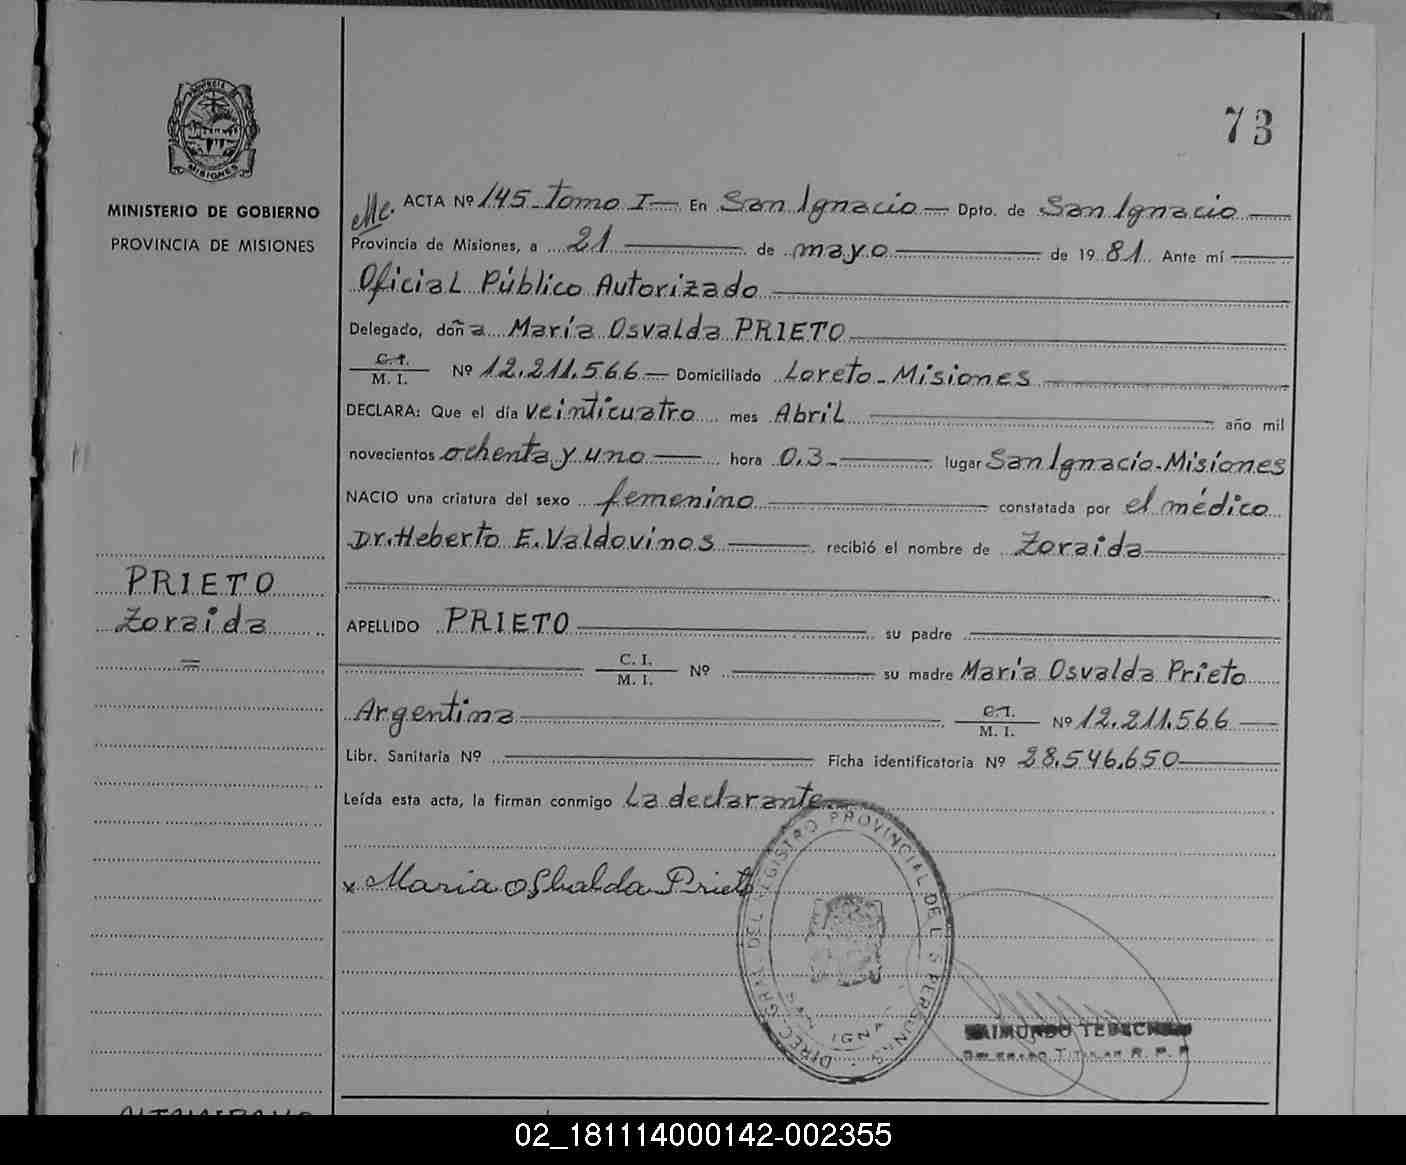 73
PROVINCIA DE
MISIONES
MINISTERIO DE GOBIERNO
PROVINCIA DE MISIONES
ACTA Nº 145 - Tomo I — En San Ignacio — Dpto. de San Ignacio
Provincia de Misiones, a 21 de mayo de 1981. Ante mí
Oficial Público Autorizado
Delegado, doña María Osvalda PRIETO
C. I.
M. I. Nº 12.211.566 — Domiciliado Loreto - Misiones
DECLARA: Que el día veinticuatro mes Abril año mil
novecientos ochenta y uno hora 0.3 - lugar San Ignacio - Misiones
NACIO una criatura del sexo femenino constatada por el médico
Dr. Heberto E. Valdovinos recibió el nombre de Zoraida
PRIETO
Zoraida
=
APELLIDO PRIETO su padre
C. I.
M. I. Nº su madre María Osvalda Prieto
Argentina C. I.
M. I. Nº 12.211.566
Libr. Sanitaria Nº Ficha identificatoria Nº 28.546.650
Leída esta acta, la firman conmigo La declarante
x Maria Osbalda Prieto
DIREC. GRAL. DEL REGISTRO PROVINCIAL DE L S PERSONAS
SAN IGNA
RAIMUNDO
TITULAR R. P. P
02_181114000142-002355